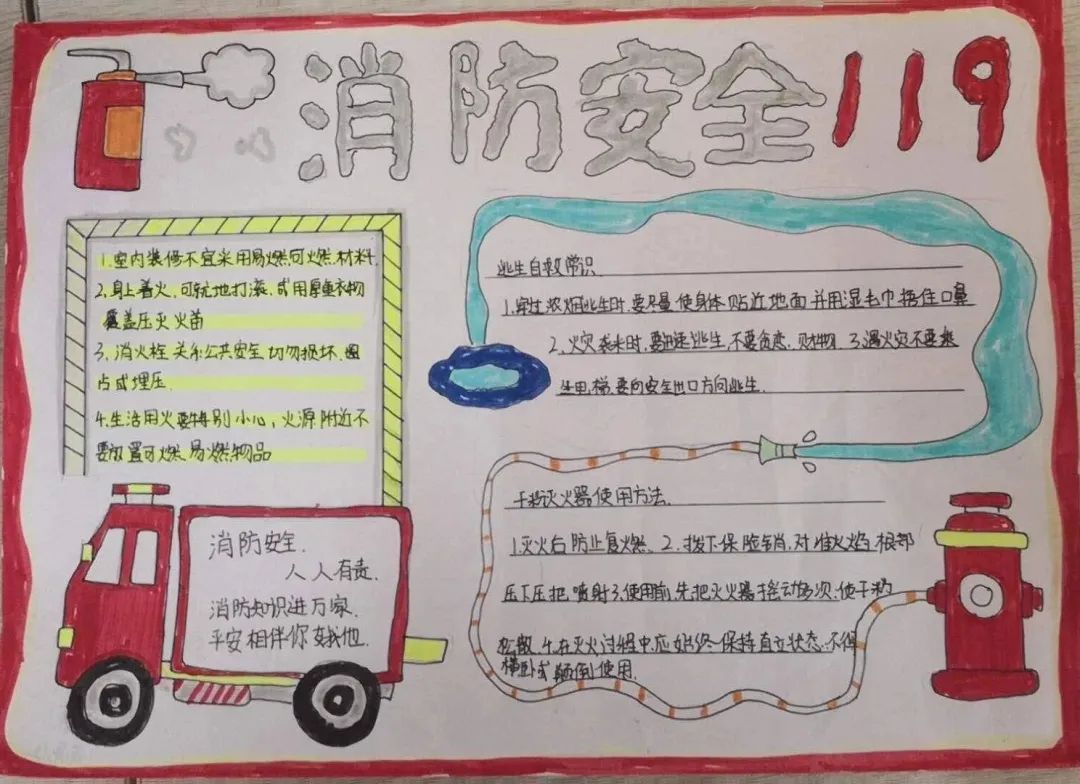 消防安全119
1.室内装修不宜采用易燃可燃材料.
2.身上着火,可就地打滚,或用厚重衣物
覆盖压灭火苗
3.消火栓关系公共安全切勿损坏.圈
占或埋压.
4.生活用火要特别小心,火源附近不
要放置可燃、易燃物品
消防安全.
人人有责.
消防知识进万家.
平安相伴你我他.
逃生自救常识.
1.穿过浓烟逃生时,要尽量使身体贴近地面并用湿毛巾捂住口鼻
2、火灾袭来时,要迅速逃生,不要贪恋.财物. 3.遇火灾不要乘
坐电梯,要向安全出口方向逃生.
干粉灭火器使用方法.
1.灭火后防止复燃、2.拨下保险销,对准火焰根部
压下压把喷射3.使用前,先把灭火器摇动多次,使干粉
松散.4.在灭火过程中应始终保持直立状态.不得
横卧或颠倒使用.